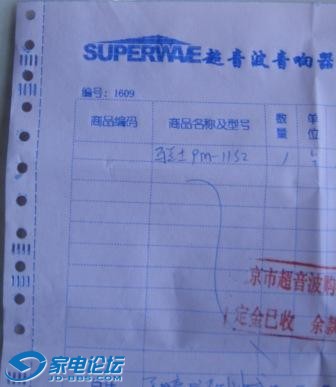 SUPERWAVE 超音波音响器
编号: 1609
商品编码 商品名称及型号 数量 单位
PM-1152 1
京市超音波购
定金已收 余款
家电论坛
JD-BBS.COM